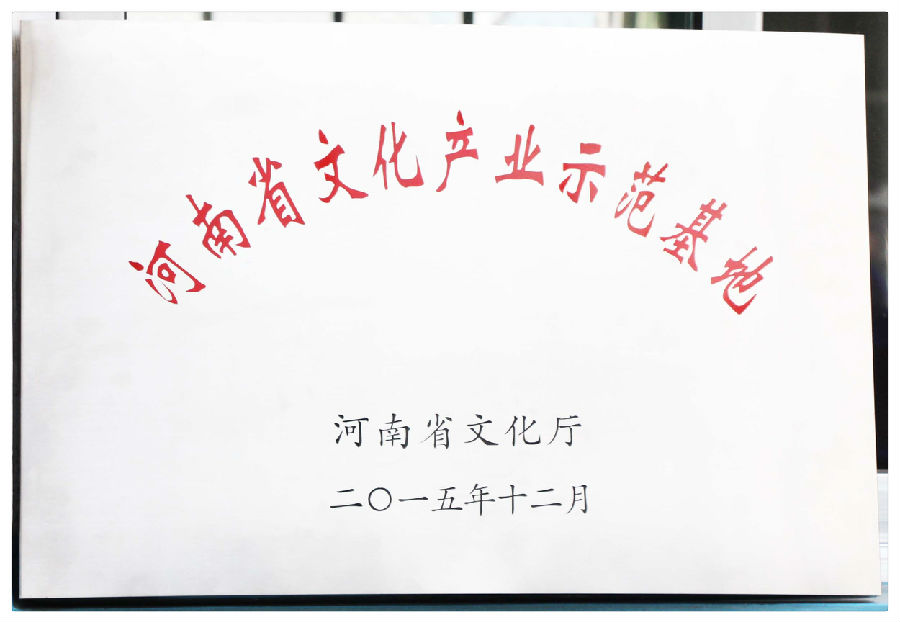 河南省文化产业示范基地
河南省文化厅
二〇一五年十二月